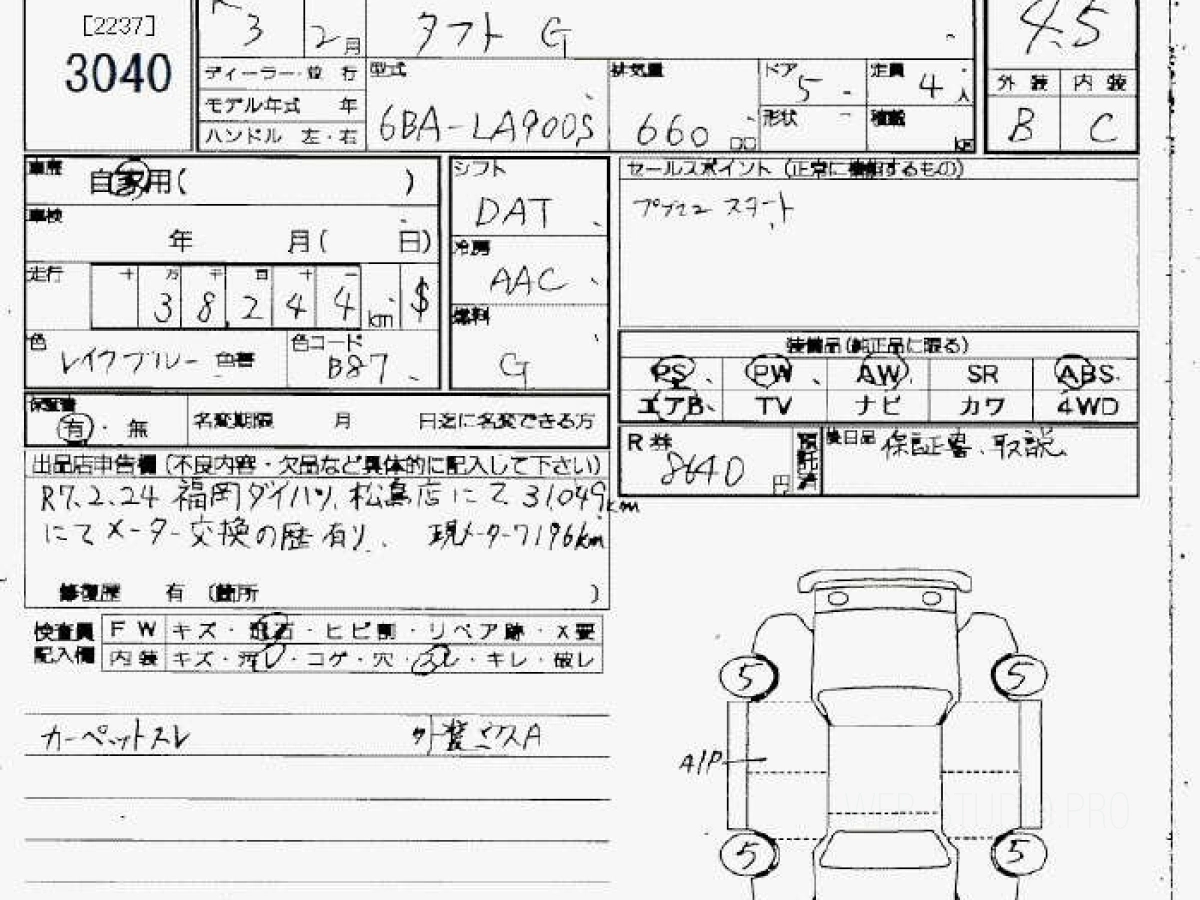 [2237]
3040
R
3
2月
タフト G
4.5
ディーラー・並 行
型式
排気量
ドア
5
定員
4人
外 装
内 装
モデル年式 年
6BA-LA900S
660
形状
積載
B
C
ハンドル 左・右
車歴
自家用( )
シフト
セールスポイント (正常に機能するもの)
DAT
プッシュ スタート
車検
年 月( 日)
冷房
AAC
走行
十 万 千 百 十 一
3 8,2 4 4 km $
燃料
G
色
レイクブルー 色番
色コード
B87
装備品(純正品に限る)
PS PW AW SR ABS
エアB TV ナビ カワ 4WD
保証書
有・無
名変期限 月 日迄に名変できる方
R 券
8640円
預託済
後日品
保証書、取説
出品店申告欄 (不良内容・欠品など具体的に記入して下さい)
R7.2.24 福岡ダイハツ, 松島店にて 31,049km
にてメーター交換の歴有り、 現メーター7196km
修復歴 有 (箇所 )
検査員
記入欄
F W キズ・飛石・ヒビ割・リペア跡・X要
内 装 キズ・汚レ・コゲ・穴・スレ・キレ・破レ
カーペットスレ
5
5
A/P
5
5
WEB STUDIO PRO